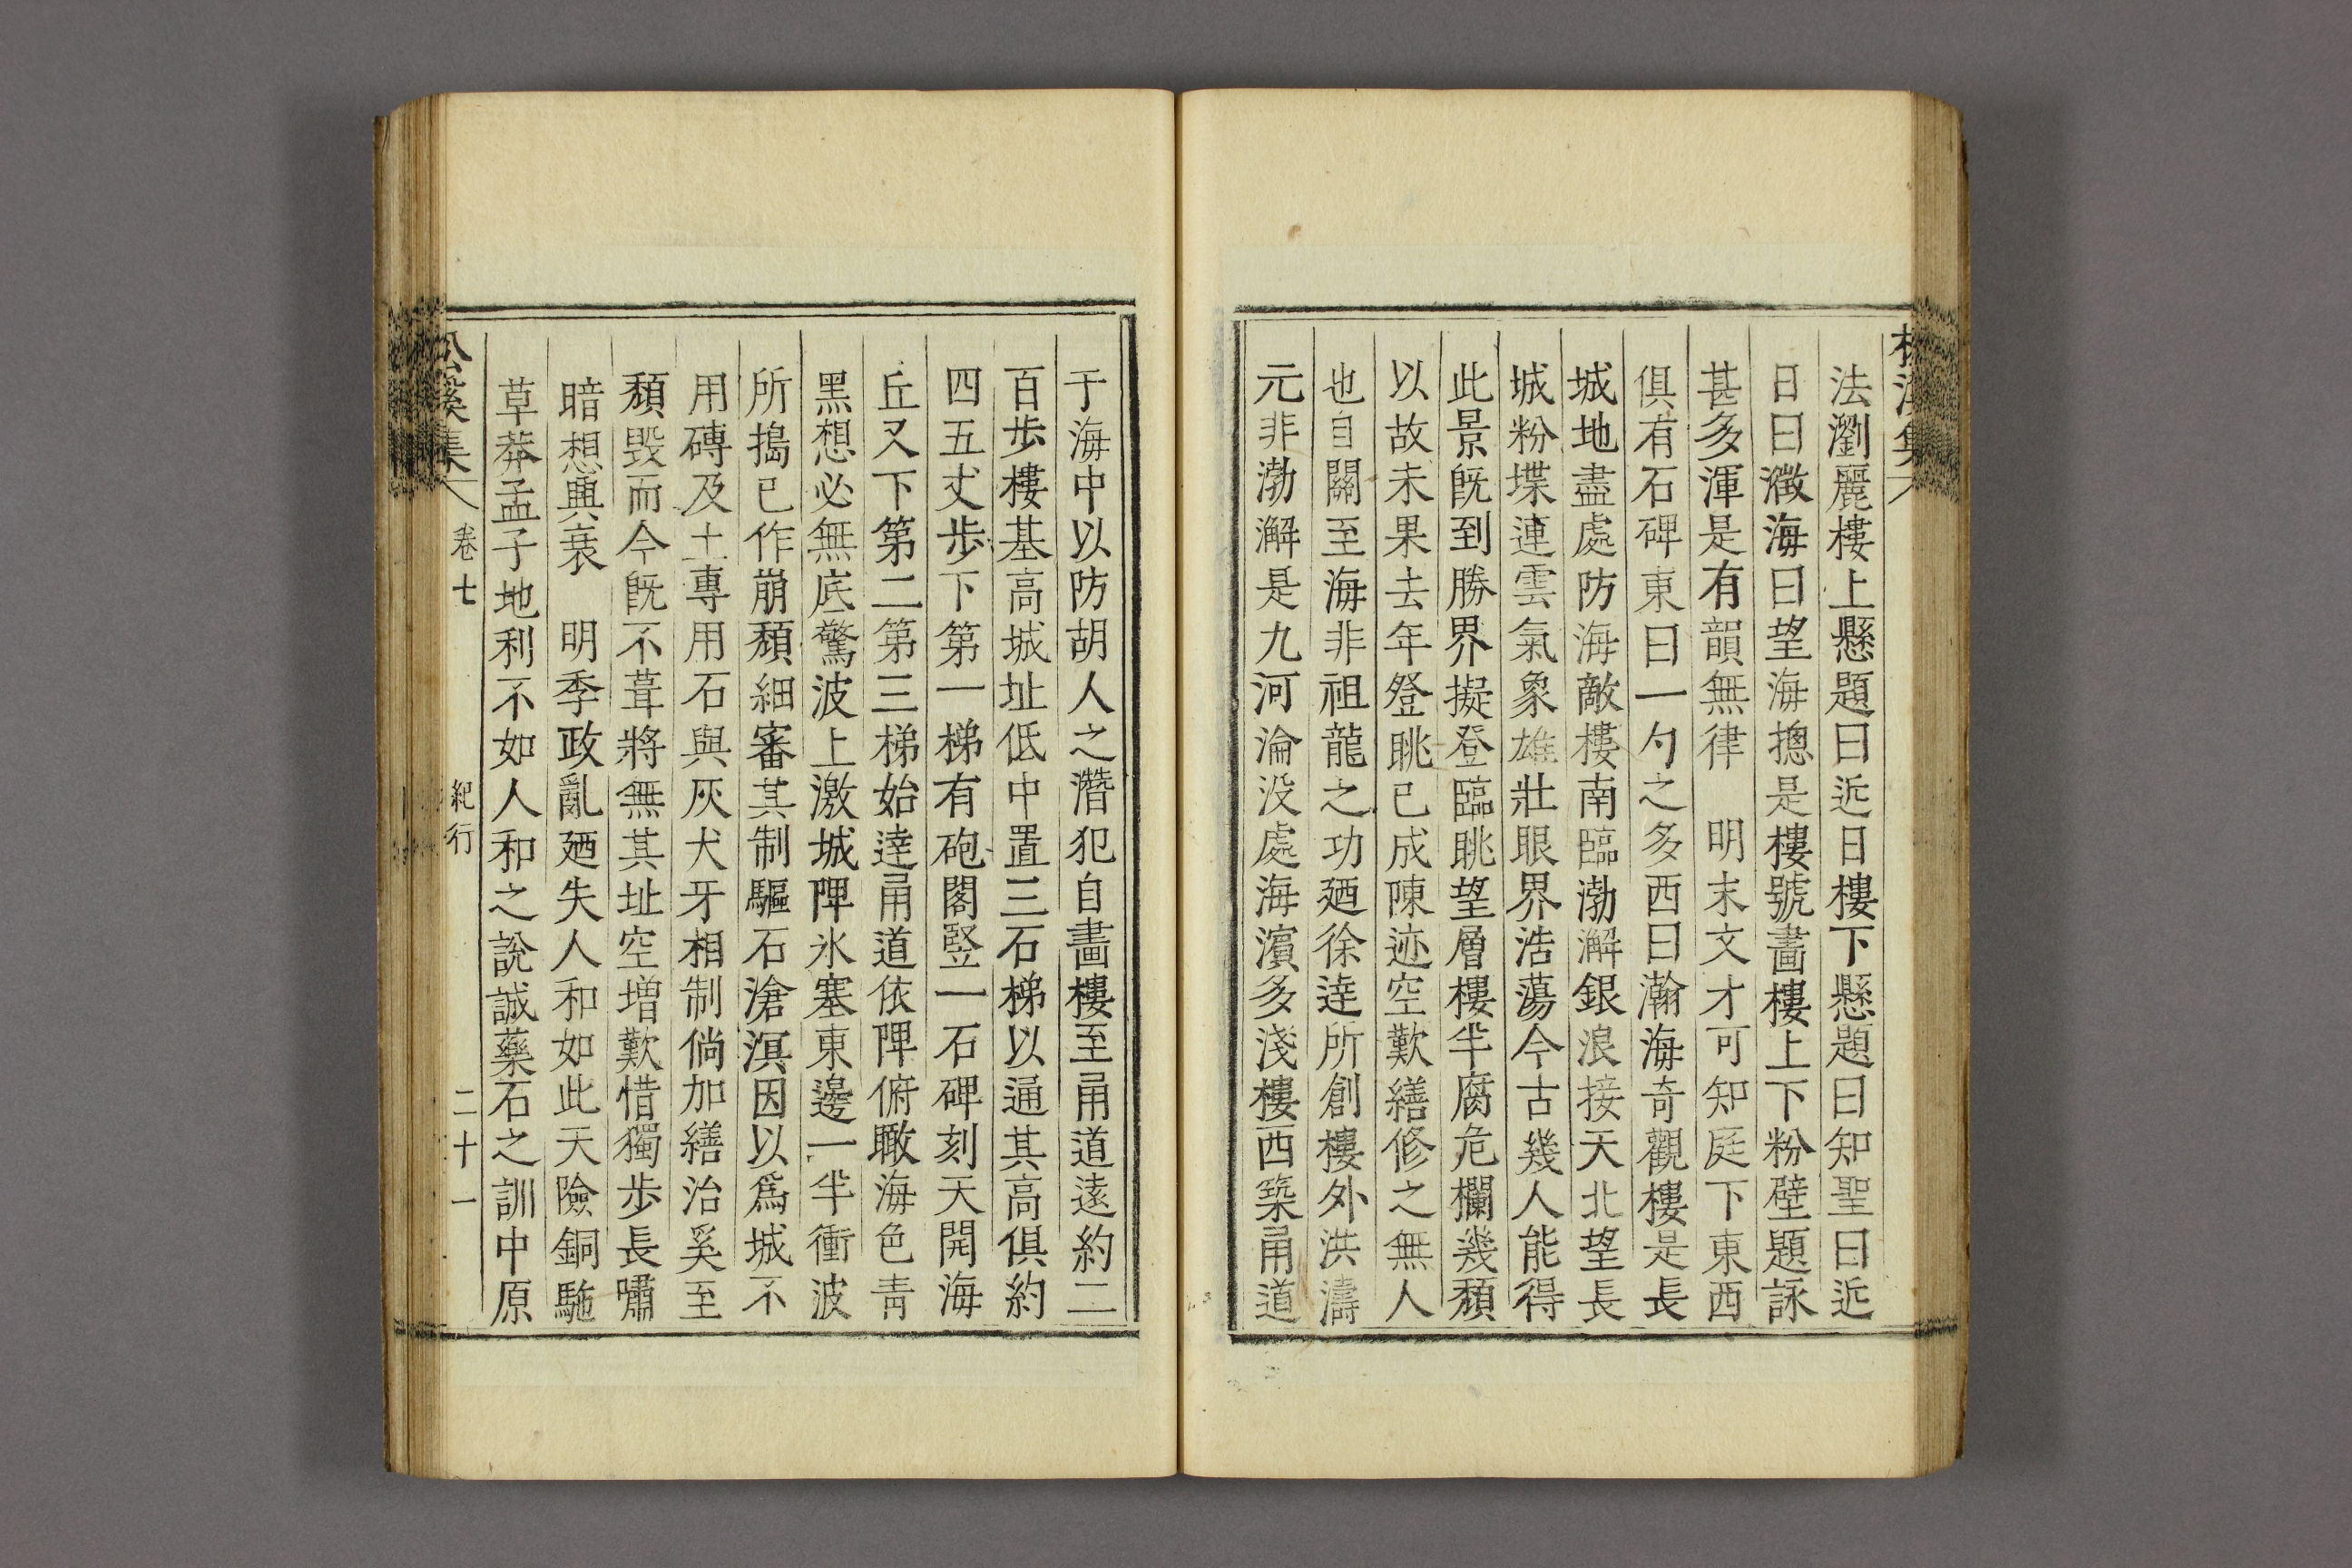 松溪集
法瀏麗樓上懸題曰近日樓下懸題曰知聖曰近
日曰澂海曰望海摠是樓號畵樓上下粉壁題詠
甚多渾是有韻無律　明末文才可知庭下東西
俱有石碑東曰一勺之多西曰瀚海奇觀樓是長
城地盡處防海敵樓南臨渤澥銀浪接天北望長
城粉堞連雲氣象雄壯眼界浩蕩今古幾人能得
此景旣到勝界擬登臨眺望層樓半腐危欄幾頹
以故未果去年登眺已成陳迹空歎繕修之無人
也自關至海非祖龍之功廼徐達所創樓外洪濤
元非渤澥是九河淪沒處海濱多淺樓西築甬道
于海中以防胡人之潛犯自畵樓至甬道遠約二
百步樓基高城址低中置三石梯以通其高俱約
四五丈步下第一梯有砲閣竪一石碑刻天開海
丘又下第二第三梯始達甬道依陴俯瞰海色靑
黑想必無底驚波上激城陴氷塞東邊一半衝波
所搗已作崩頹細審其制驅石滄溟因以爲城不
用磚及土專用石與灰犬牙相制倘加繕治奚至
頹毀而今旣不葺將無其址空增歎惜獨步長嘯
暗想興衰　明季政亂廼失人和如此天險銅駞
草莽孟子地利不如人和之說誠藥石之訓中原
松溪集　卷七　紀行　二十一